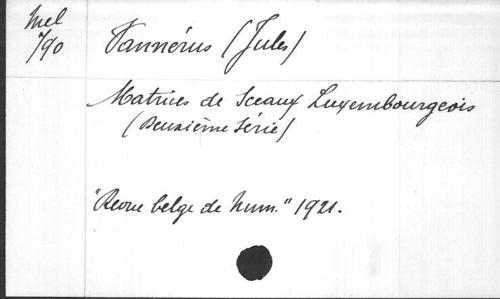 Mel
790
Vannérus (Jules)
Matrices de Sceaux Luxembourgeois
(Deuxième Série)
"Revue belge de Num." 1921.